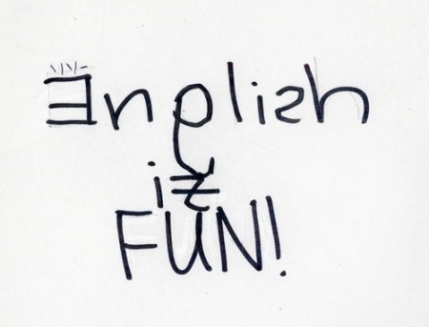 English
iz
FUN!